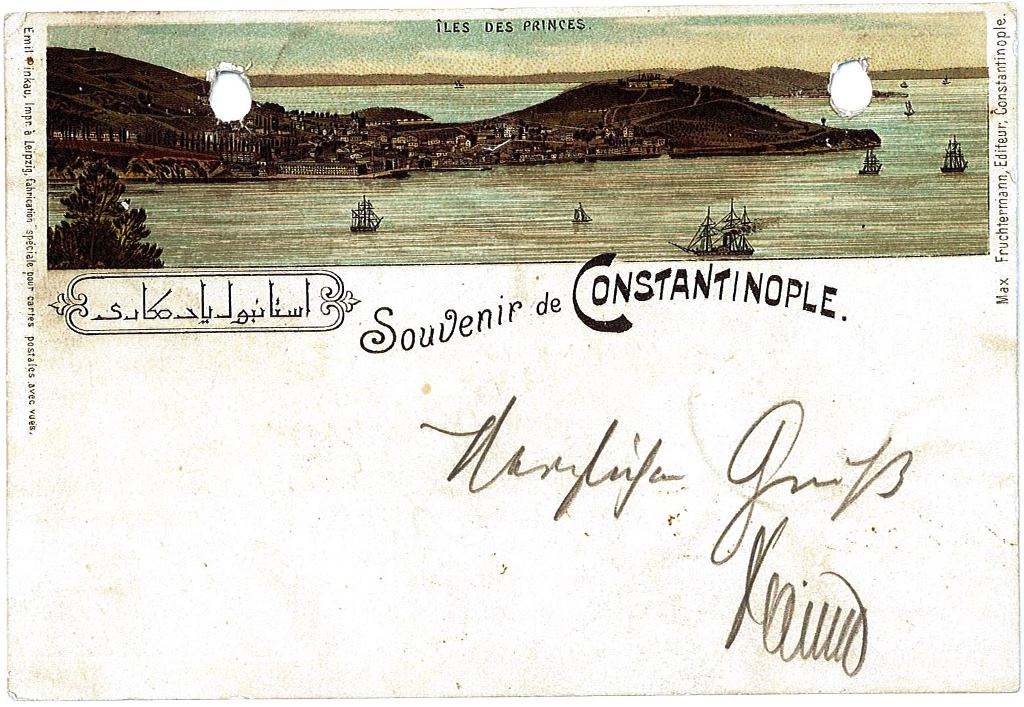 ÎLES DES PRINCES.
Emil Pinkau, Impr. à Leipzig, fabrication spéciale pour cartes postales avec vues.
Max Fruchtermann, Editeur, Constantinople.
استانبول يادكارى
Souvenir de CONSTANTINOPLE.
Herzlichen Gruß